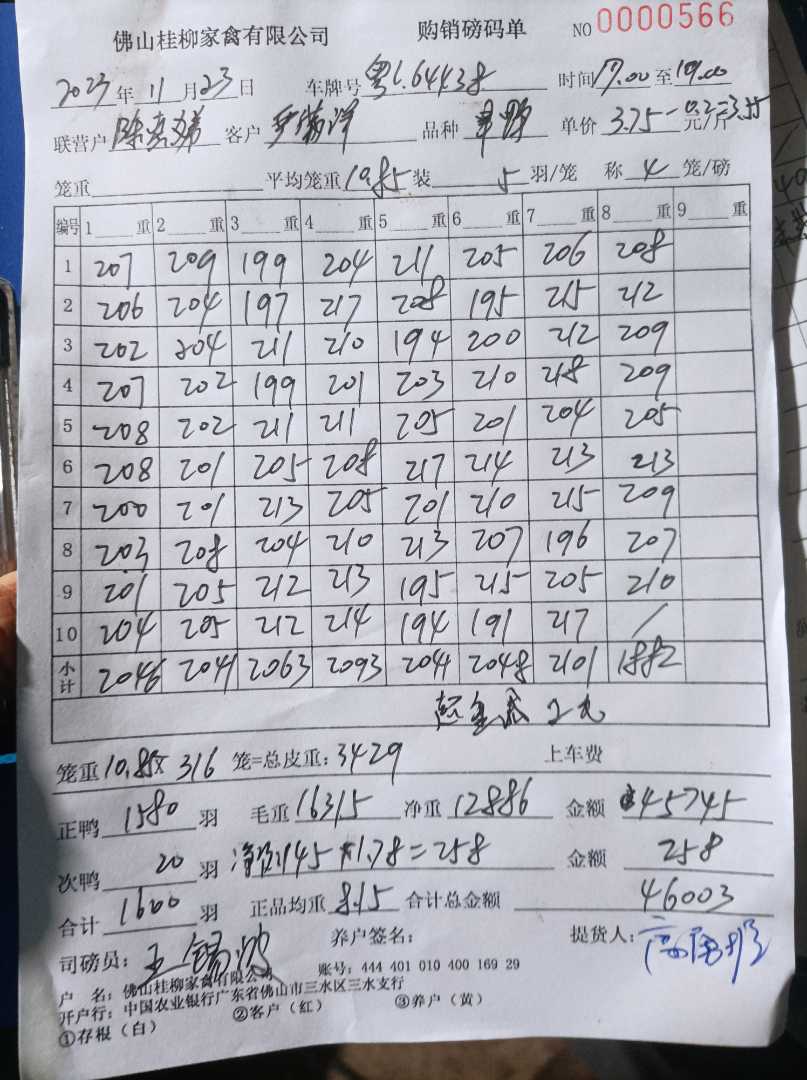 佛山桂柳家禽有限公司 购销磅码单 NO 0000566
2023年 11月23日 车牌号 粤L.64438 时间 17.00 至 19.00
联营户 客户 品种 单价 3.75-0.2=3.55 元/斤
笼重 平均笼重 装 5 羽/笼 称 4 笼/磅
编号 1 重 2 重 3 重 4 重 5 重 6 重 7 重 8 重 9 重
1 207 209 199 204 211 205 206 208
2 206 204 197 217 208 195 215 212
3 202 204 211 210 194 200 212 209
4 207 202 199 201 203 210 218 209
5 208 202 211 211 205 201 204 205
6 208 201 205 208 217 214 213 213
7 200 201 213 205 201 210 215 209
8 203 208 204 210 213 207 196 207
9 201 205 212 213 195 215 205 210
10 204 205 212 214 194 191 217 /
小计 2046 2041 2063 2093 2041 2048 2101 1882
笼重 10.85x 316 笼=总皮重: 3429 上车费
正鸭 1580 羽 毛重 16315 净重 12886 金额 45745
次鸭 20 羽 净重:145×1.78=258 金额 258
合计 1600 羽 正品均重 8.15 合计总金额 46003
司磅员: 王锡波 养户签名: 提货人:
户 名: 佛山桂柳家禽有限公司 账号: 444 401 010 400 169 29
开户行: 中国农业银行广东省佛山市三水区三水支行
①存根（白） ②客户（红） ③养户（黄）